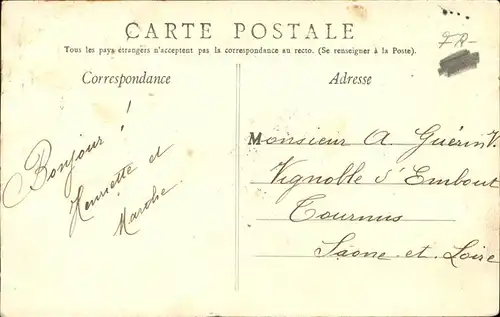 CARTE POSTALE
Tous les pays étrangers n'acceptent pas la correspondance au recto. (Se renseigner à la Poste).
FR-
Correspondance
Adresse
Bonjour !
Henriette et
Monsieur A. Guérin V.
Vignoble d'Embout
Tournus
Saone-et-Loire